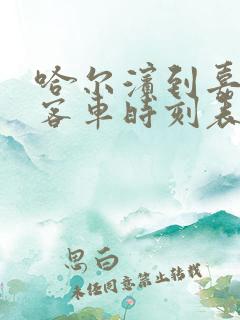 哈尔滨到嘉
客车时刻表
思白
未经同意禁止转载